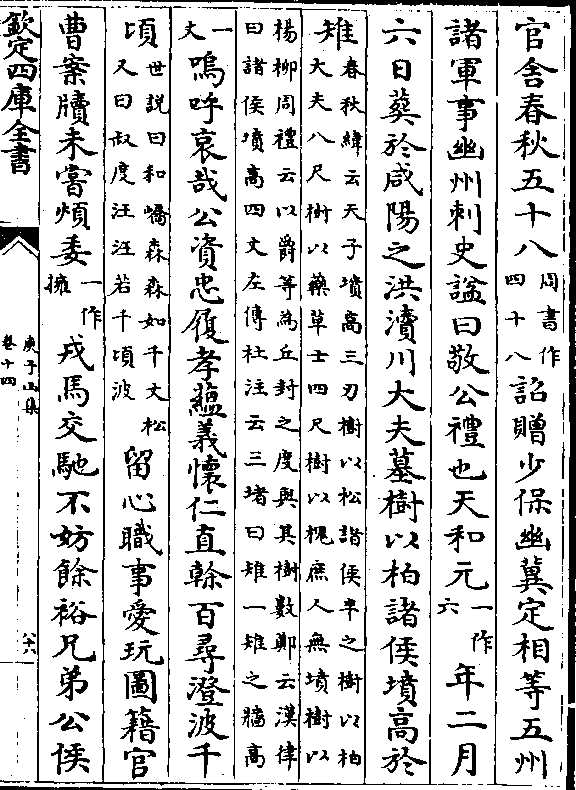 官舍春秋五十八周書作四十八詔贈少保幽冀定相等五州
諸軍事幽州刺史諡曰敬公禮也天和元一作六年二月
六日葬於咸陽之洪瀆川大夫墓樹以柏諸侯墳高於
雉春秋緯云天子墳高三刃樹以松諸侯半之樹以柏
大夫八尺樹以藥草士四尺樹以槐庶人無墳樹以
楊柳周禮云以爵等為丘封之度與其樹數鄭云漢律
曰諸侯墳高四丈左傳杜注云三堵曰雉一雉之牆高
一丈嗚呼哀哉公資忠履孝蘊義懷仁直榦百尋澄波千
頃世說曰和嶠森森如千丈松
又曰叔度汪汪若千頃波留心職事愛玩圖籍官
曹案牘未嘗煩委一作擁戎馬交馳不妨餘裕兄弟公侯
欽定四庫全書
庾子山集
卷十四
六十六